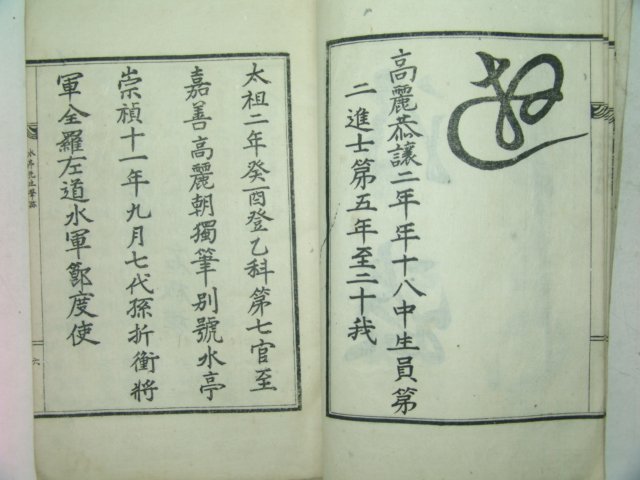 高麗恭讓二年年十八中生員第
二進士第五年至二十我
太祖二年癸酉登乙科第七官至
嘉善高麗朝獨筆別號水亭
崇禎十一年九月七代孫折衝將
軍全羅左道水軍節度使
六